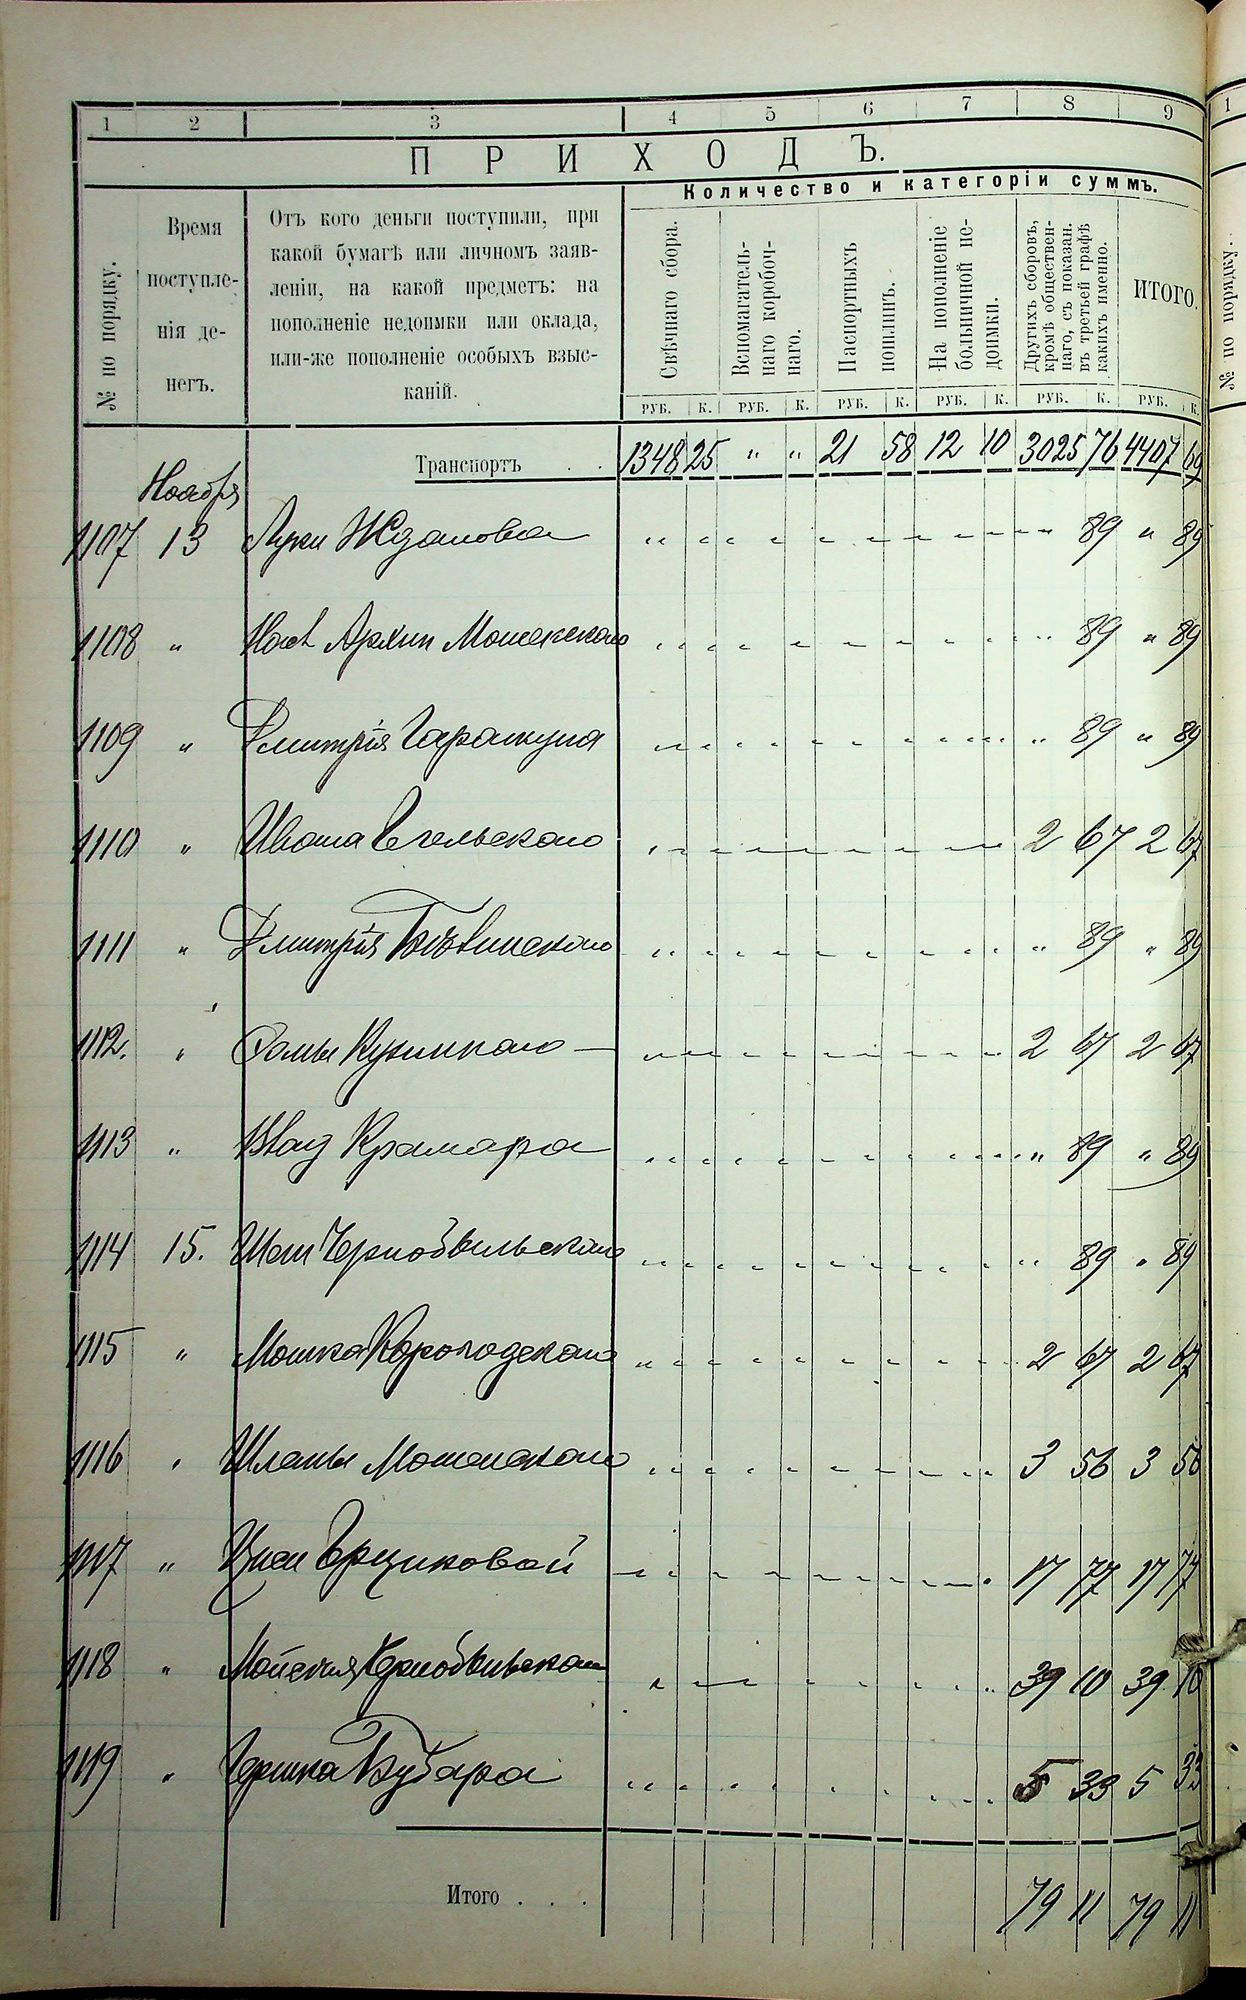 1 2 3 4 5 6 7 8 9
1
ПРИХОДЪ.
Количество и категоріи суммъ.
№ по порядку.
Время
поступле-
нія де-
негъ.
Отъ кого деньги поступили, при
какой бумагѣ или личномъ заяв-
леніи, на какой предметъ: на
пополненіе недоимки или оклада,
или-же пополненіе особыхъ взыс-
каній.
Свѣчнаго сбора.
Вспомагатель-
наго коробоч-
наго.
Паспортныхъ
пошлинъ.
На пополненіе
больничной не-
доимки.
Другихъ сборовъ,
кромѣ обществен-
наго, съ показан.
въ третьей графѣ
какихъ именно.
ИТОГО.
№ по порядку.
РУБ. К. РУБ. К. РУБ. К. РУБ. К. РУБ. К. РУБ. К.
Транспортъ . . 1348 25 " " 21 58 12 10 3025 76 4407 69
Ноября
1107 13 Луки Жданова " 89 " 89
1108 " Архип " 89 " 89
1109 " Дмитрія " 89 " 89
1110 " Ивана 2 67 2 67
1111 " Дмитрія " 89 " 89
1112. " 2 67 2 67
1113 " Влад Крамара " 89 " 89
1114 15. Чернобыльскаго " 89 " 89
1115 " Мошка Корогодскаго 2 67 2 67
1116 " 3 56 3 56
1117 " 17 77 17 77
1118 " Чернобыльскаго 39 10 39 10
1119 " Гершка 5 33 5 33
Итого . . . 79 11 79 11